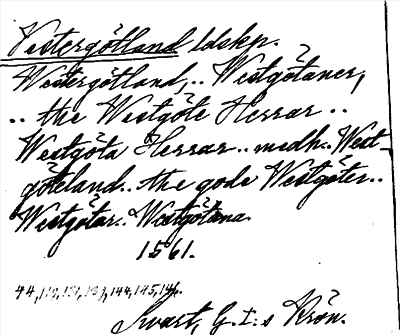 Västergötland ldskp.
Westergötland, .. Westgötaner,
.. the Westgöte Herrar ..
Westgöta Herrar .. medh .. West-
göteland .. the gode Westgöter ..
Westgötar .. Westgötana.
1561.
44, 144, 145, 146.
Swart, G. I:s Krön.